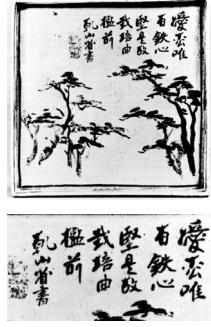 愛唯
有鉄心
堅是故
栽培曲
檻前
乾山省書
愛唯
有鉄心
堅是故
栽培曲
檻前
乾山省書